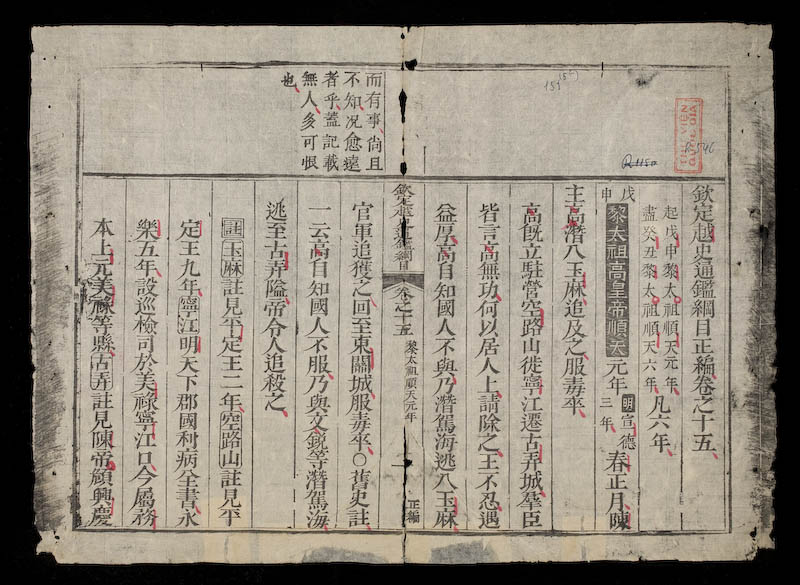 欽定越史通鑑綱目正編卷之十五
起戊申黎太祖順天元年
盡癸丑黎太祖順天六年
凡六年
戊申
黎太祖高皇帝順天元年
明宣德三年
春正月陳
主高潛入玉麻追及之服毒卒
高旣立駐營空路山徙寧江遷古弄城羣臣
皆言高無功何以居人上請除之王不忍遇
益厚高自知國人不與乃潛駕海逃入玉麻
欽定越史通鑑綱目
卷之十五
黎太祖順天元年
一
正編
官軍追獲之回至東關城服毒卒○舊史註
一云高自知國人不服乃與文銳等潛駕海
逃至古弄隘帝令人追殺之
註玉麻註見平定王二年空路山註見平
定王九年寧江明天下郡國利病全書永
樂五年設巡檢司於美祿寧江口今屬務
本上元美祿等縣古弄註見陳帝顒興慶
而有事尙且
不知况愈遠
者乎蓋記載
無人多可恨
也
151
THƯ VIỆN
QUỐC GIA
R.1150
R.546